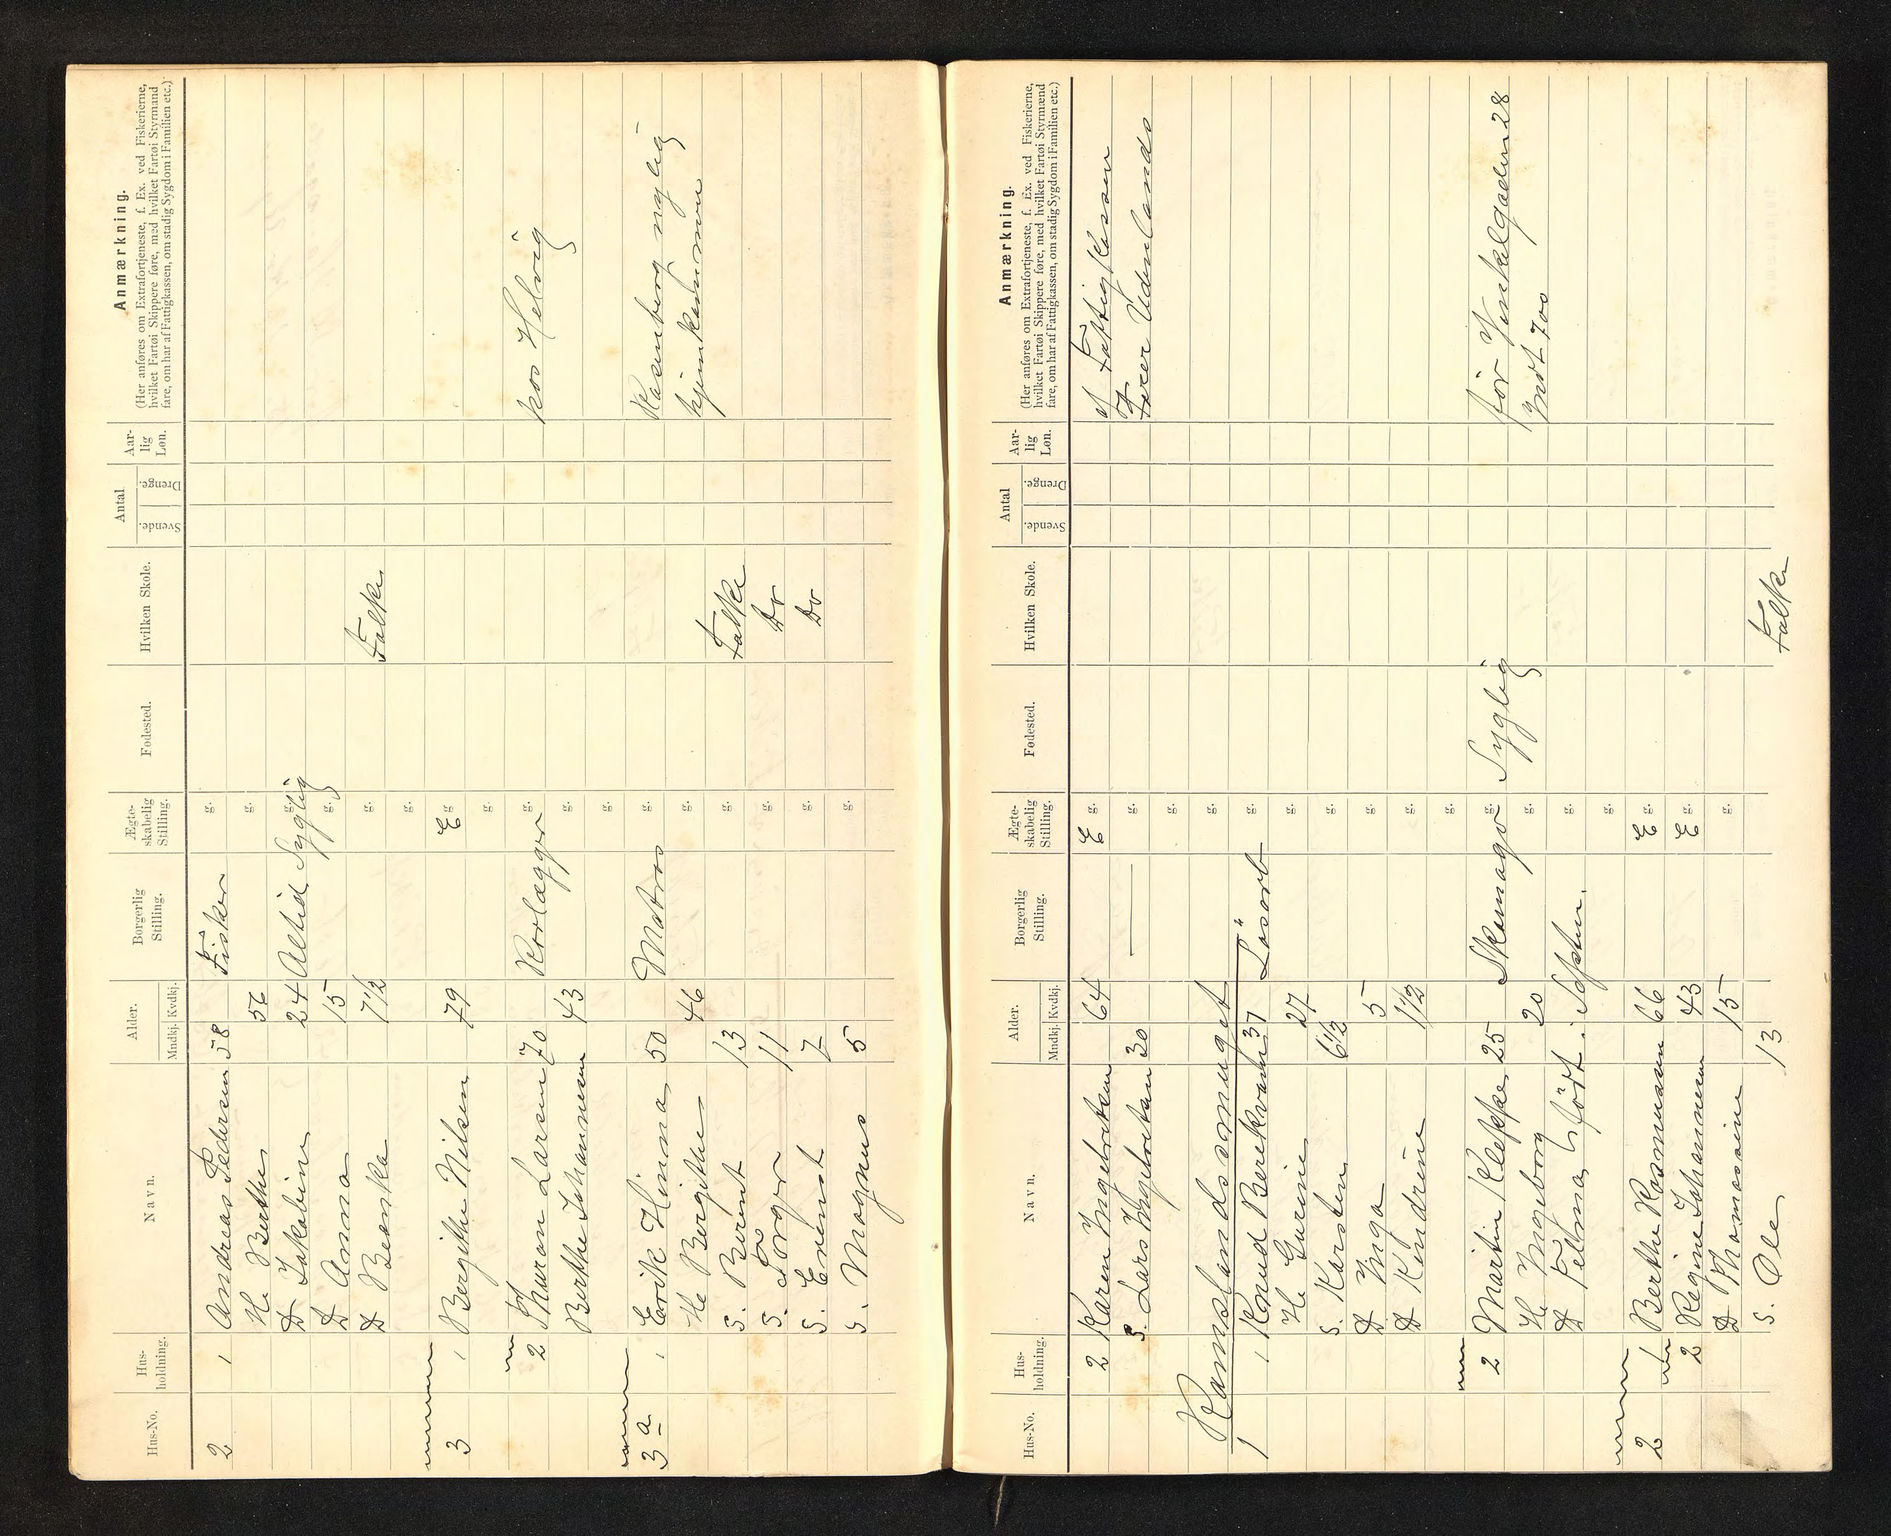 Hus-No. Hus-holdning. Navn. Alder. Mndkj. Kvdkj. Borgerlig Stilling. Ægte-skabelig Stilling. Fødested. Hvilken Skole. Antal Svende. Drenge. Aar-lig Løn. Anmærkning.
(Her anføres om Extrafortjeneste, f. Ex. ved Fiskerierne,
hvilket Fartøi Skippere føre, med hvilket Fartøi Styrmand
fare, om har af Fattigkassen, om stadig Sygdom i Familien etc.)
2 1 Andreas Pedersen 58 Fisker g.
H. Berthe 56 g.
D Jakobine 24 Altid Syglig g.
D Anna 15 g.
D Beanka 7 1/2 g. Folke
g.
3 1 Bergithe Nilsen 79 E g.
g.
2 Thuran Larsen 70 Rorlægger g. hos Helvig
Berthe Johannesen 43 g.
g.
3 a 1 Erik Hinna 50 Matros g. Rosenberg nylig
He Bergithe 46 g. hjemkommen
S. Berent 13 g. Folke
S. Torger 11 g. Do
S. Erenst 7 g. Do
S. Magnus 5 g.
Hus-No. Hus-holdning. Navn. Alder. Mndkj. Kvdkj. Borgerlig Stilling. Ægte-skabelig Stilling. Fødested. Hvilken Skole. Antal Svende. Drenge. Aar-lig Løn. Anmærkning.
(Her anføres om Extrafortjeneste, f. Ex. ved Fiskerierne,
hvilket Fartøi Skippere føre, med hvilket Fartøi Styrmænd
fare, om har af Fattigkassen, om stadig Sygdom i Familien etc.)
2 Karen Ingebretsen 64 E g. af Fattig Kassen
S. Lars Ingebretsen 30 — g. Farer Udenlands
g.
Ramslandssmuget g.
1 1 Knud Berekvam 37 Løsarb g.
H. Gurine 27 g.
S. Karsten 6 1/2 g.
D Inga 5 g.
D Kendrine 1 1/2 g.
g.
2 Martin Kleppe 25 Skomager g. Syglig før Vinkelgaden 28
H. Ingeborg 20 g. Indt 700
D Telma født i Septem. g.
g.
2 1 Berthe Rasmussen 66 E g.
2 Regine Johannesen 43 E g.
D Thomassine 15 g.
S. Ole 13 Folke